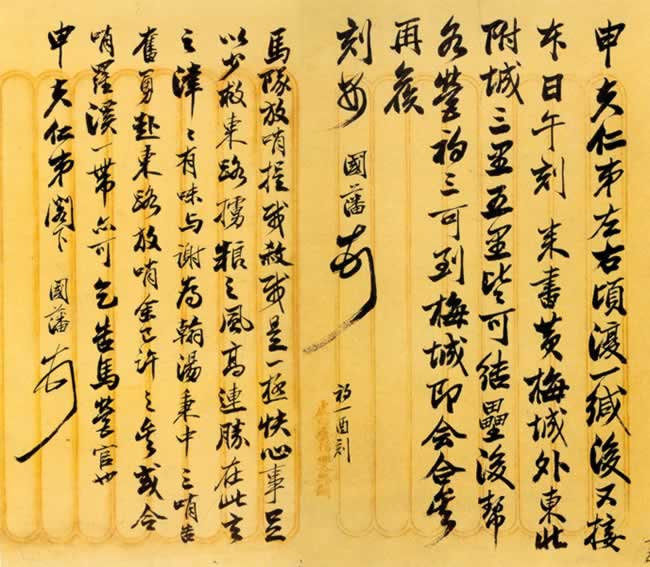 申夫仁弟左右頃復一緘後又接
本日午刻來書黃梅城外東北
附城三里五里皆可結壘後幫
各營初三可到梅城即會合矣
再復
刻安 國藩 頓
初一酉刻
馬隊放哨捉賊殺賊是一極快心事足
以少救東路擄糧之風高連勝在此言
之津〻有味与謝為翰湯秉中三哨告
奮勇赴東路放哨余已許之矣或令
哨羅溪一帶亦可乞告馬營官也
申夫仁弟閣下 國藩 頓